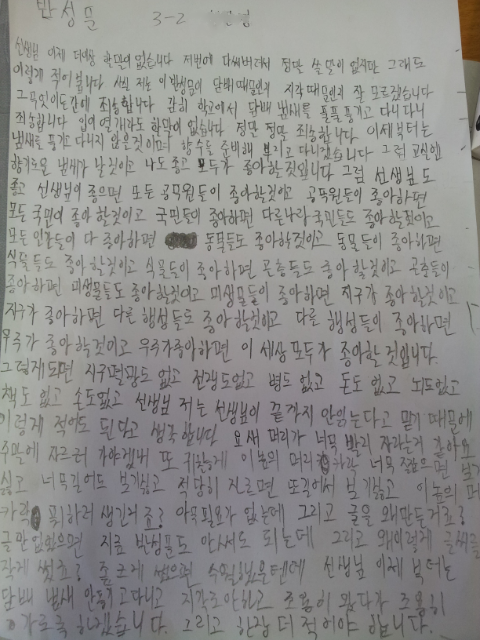 반성문 3-2
선생님 이제 더이상 할말이 없습니다 저번에 다써버려서 정말 쓸말이 없지만 그래도
이렇게 적어봅니다 사실 저는 이 반성문이 담배 때문인지 지각 때문인지 잘 모르겠습니다
그무엇이든간에 죄송합니다 감히 학교에서 담배 냄새를 풀풀 풍기고 다니다니
죄송합니다 입이 열개라도 할말이 없습니다 정말 정말 죄송합니다 이제부터는
냄새를 풍기고 다니지 않을것이며 향수를 준비해 뿌리고 다니겠습니다 그럼 교실안
향기로운 냄새가 날것이고 나도좋고 모두가 좋아할것입니다 그럼 선생님도
좋고 선생님이 좋으면 모든 공무원들이 좋아할것이고 공무원들이 좋아하면
모든 국민이 좋아할것이고 국민들이 좋아하면 다른나라 국민들도 좋아할것이고
모든 인간들이 다 좋아하면 동물들도 좋아할것이고 동물들이 좋아하면
식물들도 좋아할것이고 식물들이 좋아하면 곤충들도 좋아할것이고 곤충들이
좋아하면 미생물들도 좋아할것이고 미생물들이 좋아하면 지구가 좋아할것이고
지구가 좋아하면 다른 행성들도 좋아할것이고 다른 행성들이 좋아하면
우주가 좋아할것이고 우주가좋아하면 이 세상 모두가 좋아할 것입니다.
그렇게되면 지구멸망도 없고 전쟁도없고 병도 없고 돈도 없고 뇌도없고
책도 없고 손도없고 선생님 저는 선생님이 끝까지 안읽는다고 믿기 때문에
이렇게 적어도 된다고 생각합니다 요새 머리가 너무 빨리 자라는거 같아요
주말에 자르러 가야겠네 또 귀찮게 이놈의 머리 너무 짧으면 보기
싫고 너무길어도 보기싫고 적당히 자르면 또길어서 보기싫고 이놈의 머
카락 뭐하러 생긴거죠? 아무필요가 없는데 그리고 글을 왜만든거죠?
글만 없었으면 지금 반성문도 안써도 되는데 그리고 왜이렇게 글씨를
작게 썼죠? 좀 크게 썼으면 수월했을텐데 선생님 이제부터는
담배 냄새 안풍기고다니고 지각조안하고 조용히 왔다가 조용히
가도록 하겠습니다. 그리고 한장 더 적어야 합니다.